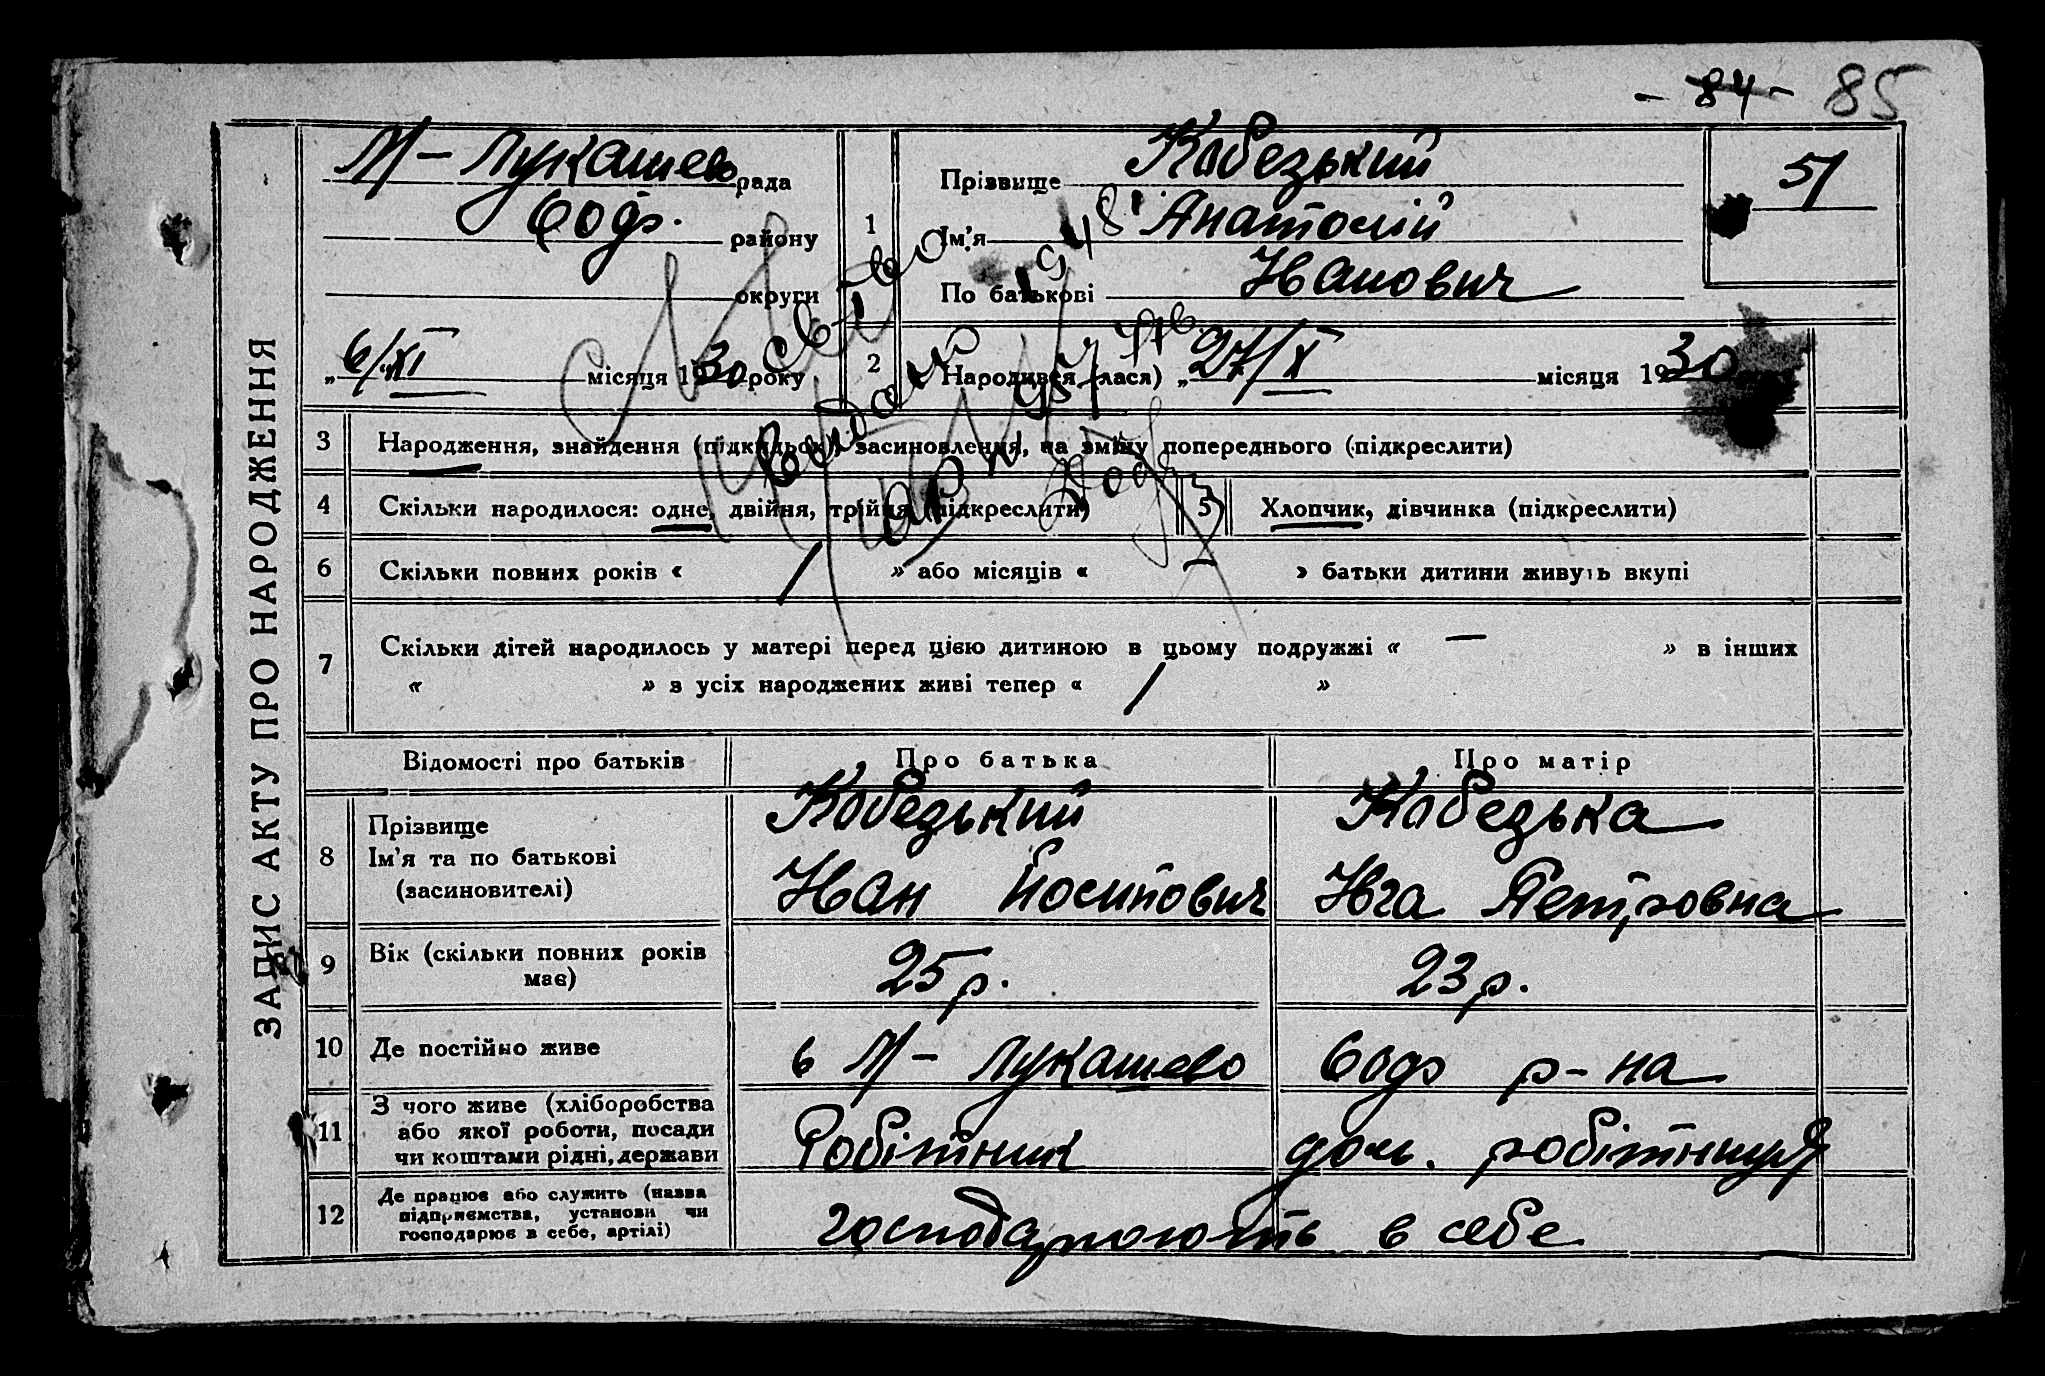 - 84 - 85
М-Лукашево рада
Волод. району
округи
1
Прізвище Кобезький
Ім'я Анатолій
По батькові Иванович
51
„6/XI місяця 1930 року
2
Народився (лася) „27/X місяця 1930
Св-во
1948
ЗАПИС АКТУ ПРО НАРОДЖЕННЯ
3 Народження, знайдення (підкидьок), засиновлення, на зміну попереднього (підкреслити)
4 Скільки народилося: одне, двійня, трійня (підкреслити) 5 Хлопчик, дівчинка (підкреслити)
6 Скільки повних років « / » або місяців « — » батьки дитини живуть вкупі
7 Скільки дітей народилось у матері перед цією дитиною в цьому подружжі « — » в інших
« » з усіх народжених живі тепер « / »
Відомості про батьків Про батька Про матір
8 Прізвище
Ім'я та по батькові
(засиновителі)
Кобезький Кобезька
Иван Йосипович Ивга Петровна
9 Вік (скільки повних років
має)
25 р. 23 р.
10 Де постійно живе в М-Лукашево р-на
11 З чого живе (хліборобства
або якої роботи, посади
чи коштами рідні, держави
Робітник дом. робітниця
12 Де працює або служить (назва
підприємства, установи чи
господарює в себе, артілі)
господарюють в себе